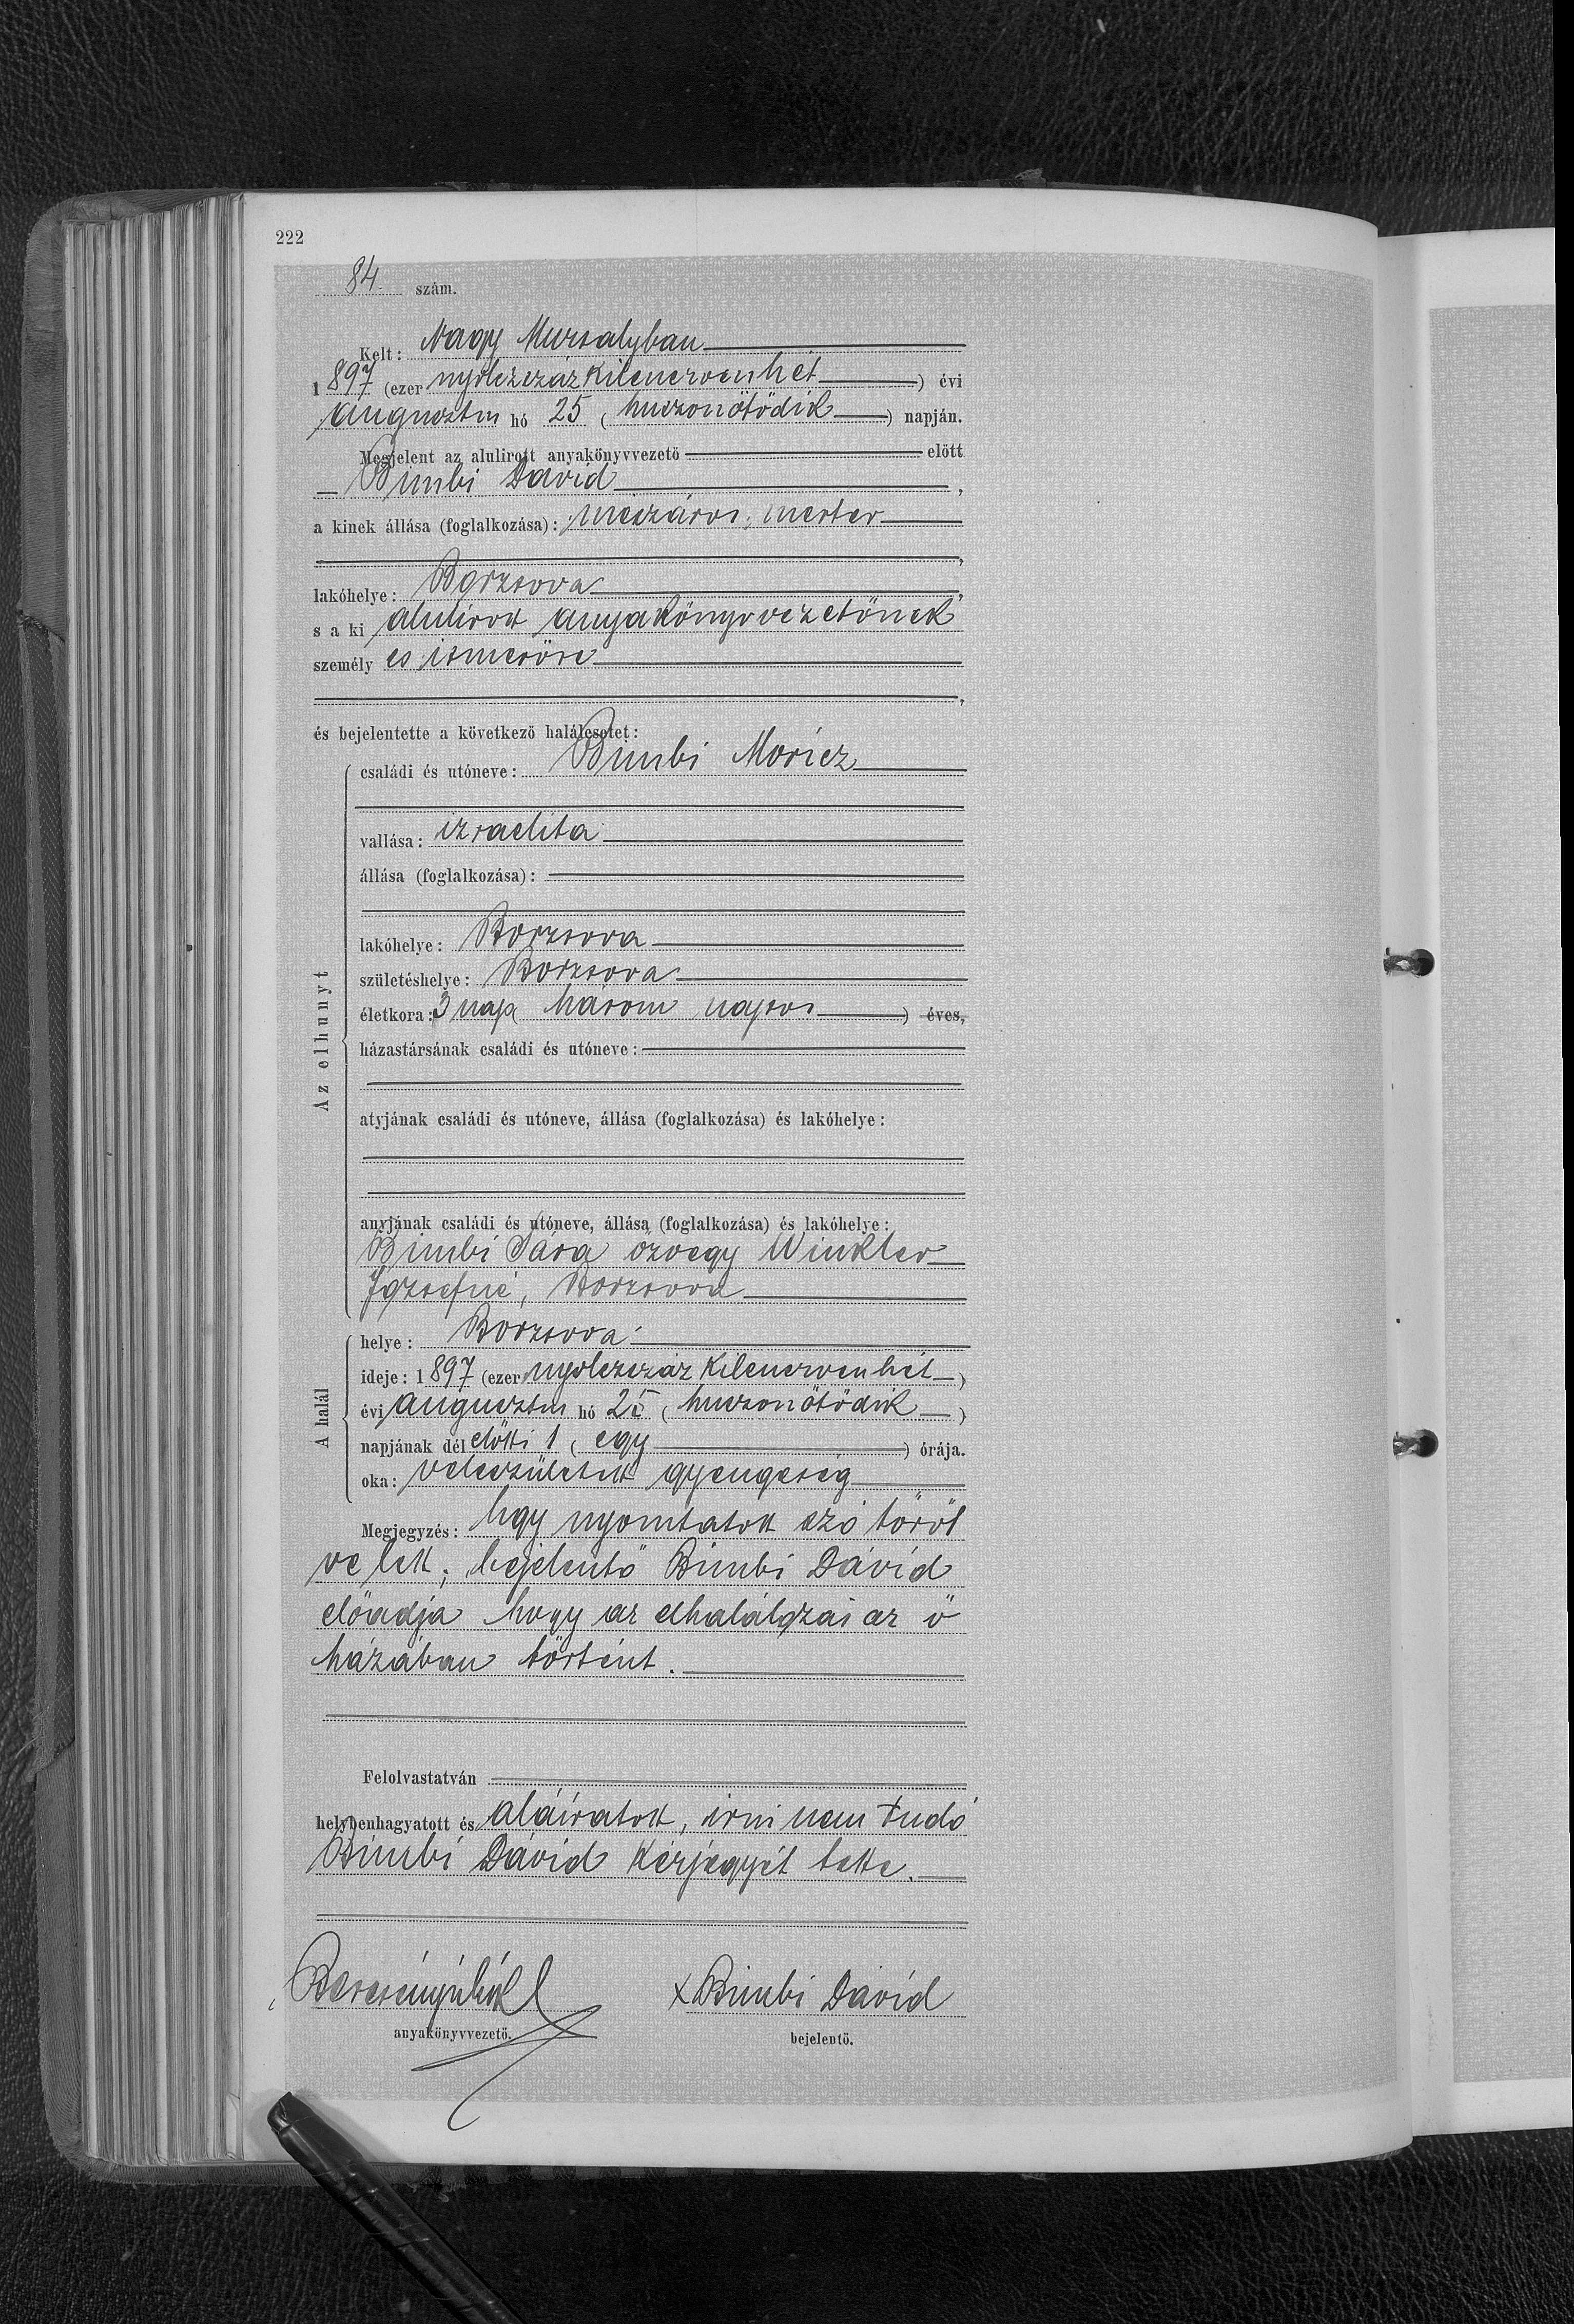 222
84. szám.
Kelt: Nagy Muzsalyban
1897 (ezer nyolczszáz kilenczvenhét) évi
augusztus hó 25 (huszonötödik) napján.
Megjelent az alulirott anyakönyvvezető előtt
Bimbi Dávid,
a kinek állása (foglalkozása): mészáros mester
,
lakóhelye: Borzsova,
s a ki alulirott anyakönyvvezetőnek
személyes ismerőse
,
és bejelentette a következő halálesetet:
Az elhunyt
családi és utóneve: Bimbi Móricz
vallása: izraelita
állása (foglalkozása):
lakóhelye: Borzsova
születéshelye: Borzsova
életkora: 3 nap (három napos) éves,
házastársának családi és utóneve:
atyjának családi és utóneve, állása (foglalkozása) és lakóhelye:
anyjának családi és utóneve, állása (foglalkozása) és lakóhelye:
Bimbi Sára özvegy Winkler
Józsefné, Borzsova
A halál
helye: Borzsova
ideje: 1897 (ezer nyolczszáz kilenczvenhét)
évi augusztus hó 25 (huszonötödik)
napjának délelőtti 1 (egy) órája.
oka: veleszületett gyengeség
Megjegyzés: Egy nyomtatott szó töröl
ve lett; bejelentő Bimbi Dávid
előadja hogy az elhalálozás az ő
házában történt.
Felolvastatván
helybenhagyatott és aláiratott, irni nem tudó
Bimbi Dávid kézjegyét tette.
x Bimbi Dávid
anyakönyvvezető.
bejelentő.